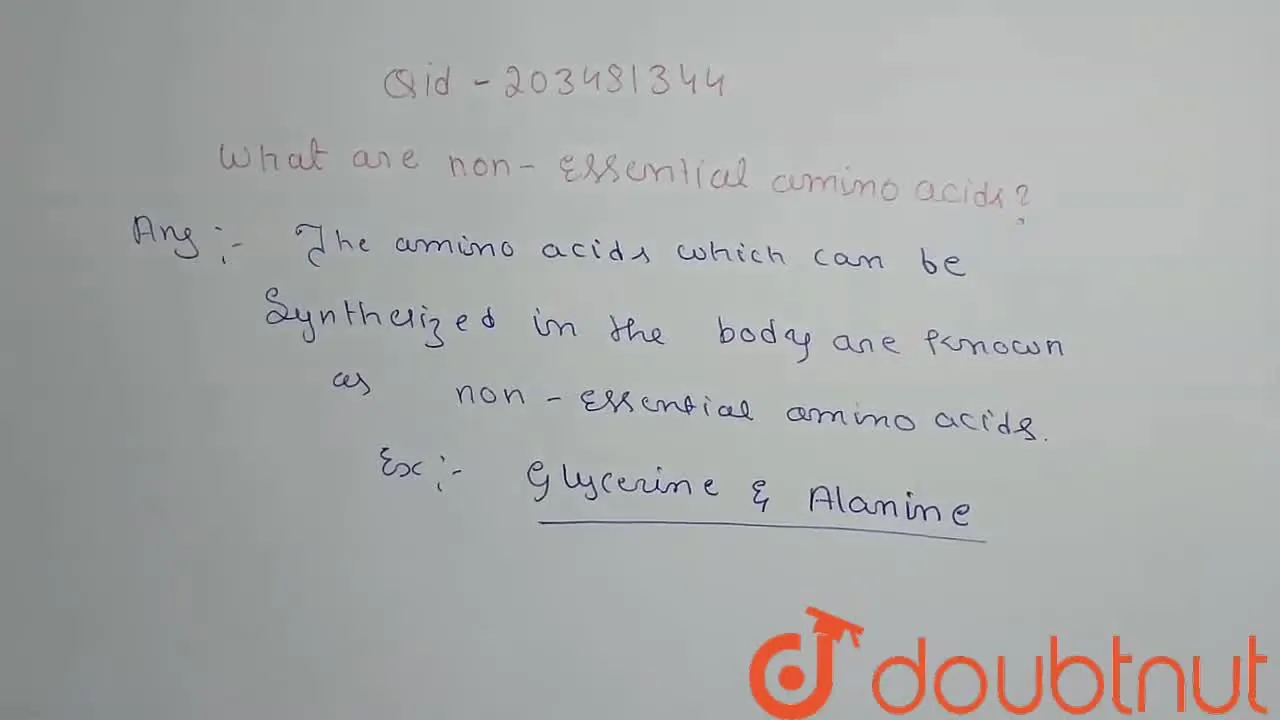 Qid - 203481344
What are non-essential amino acids?
Ans :- The amino acids which can be
Synthesized in the body are known
as non-essential amino acids.
Ex :- Glycerine & Alanine
doubtnut